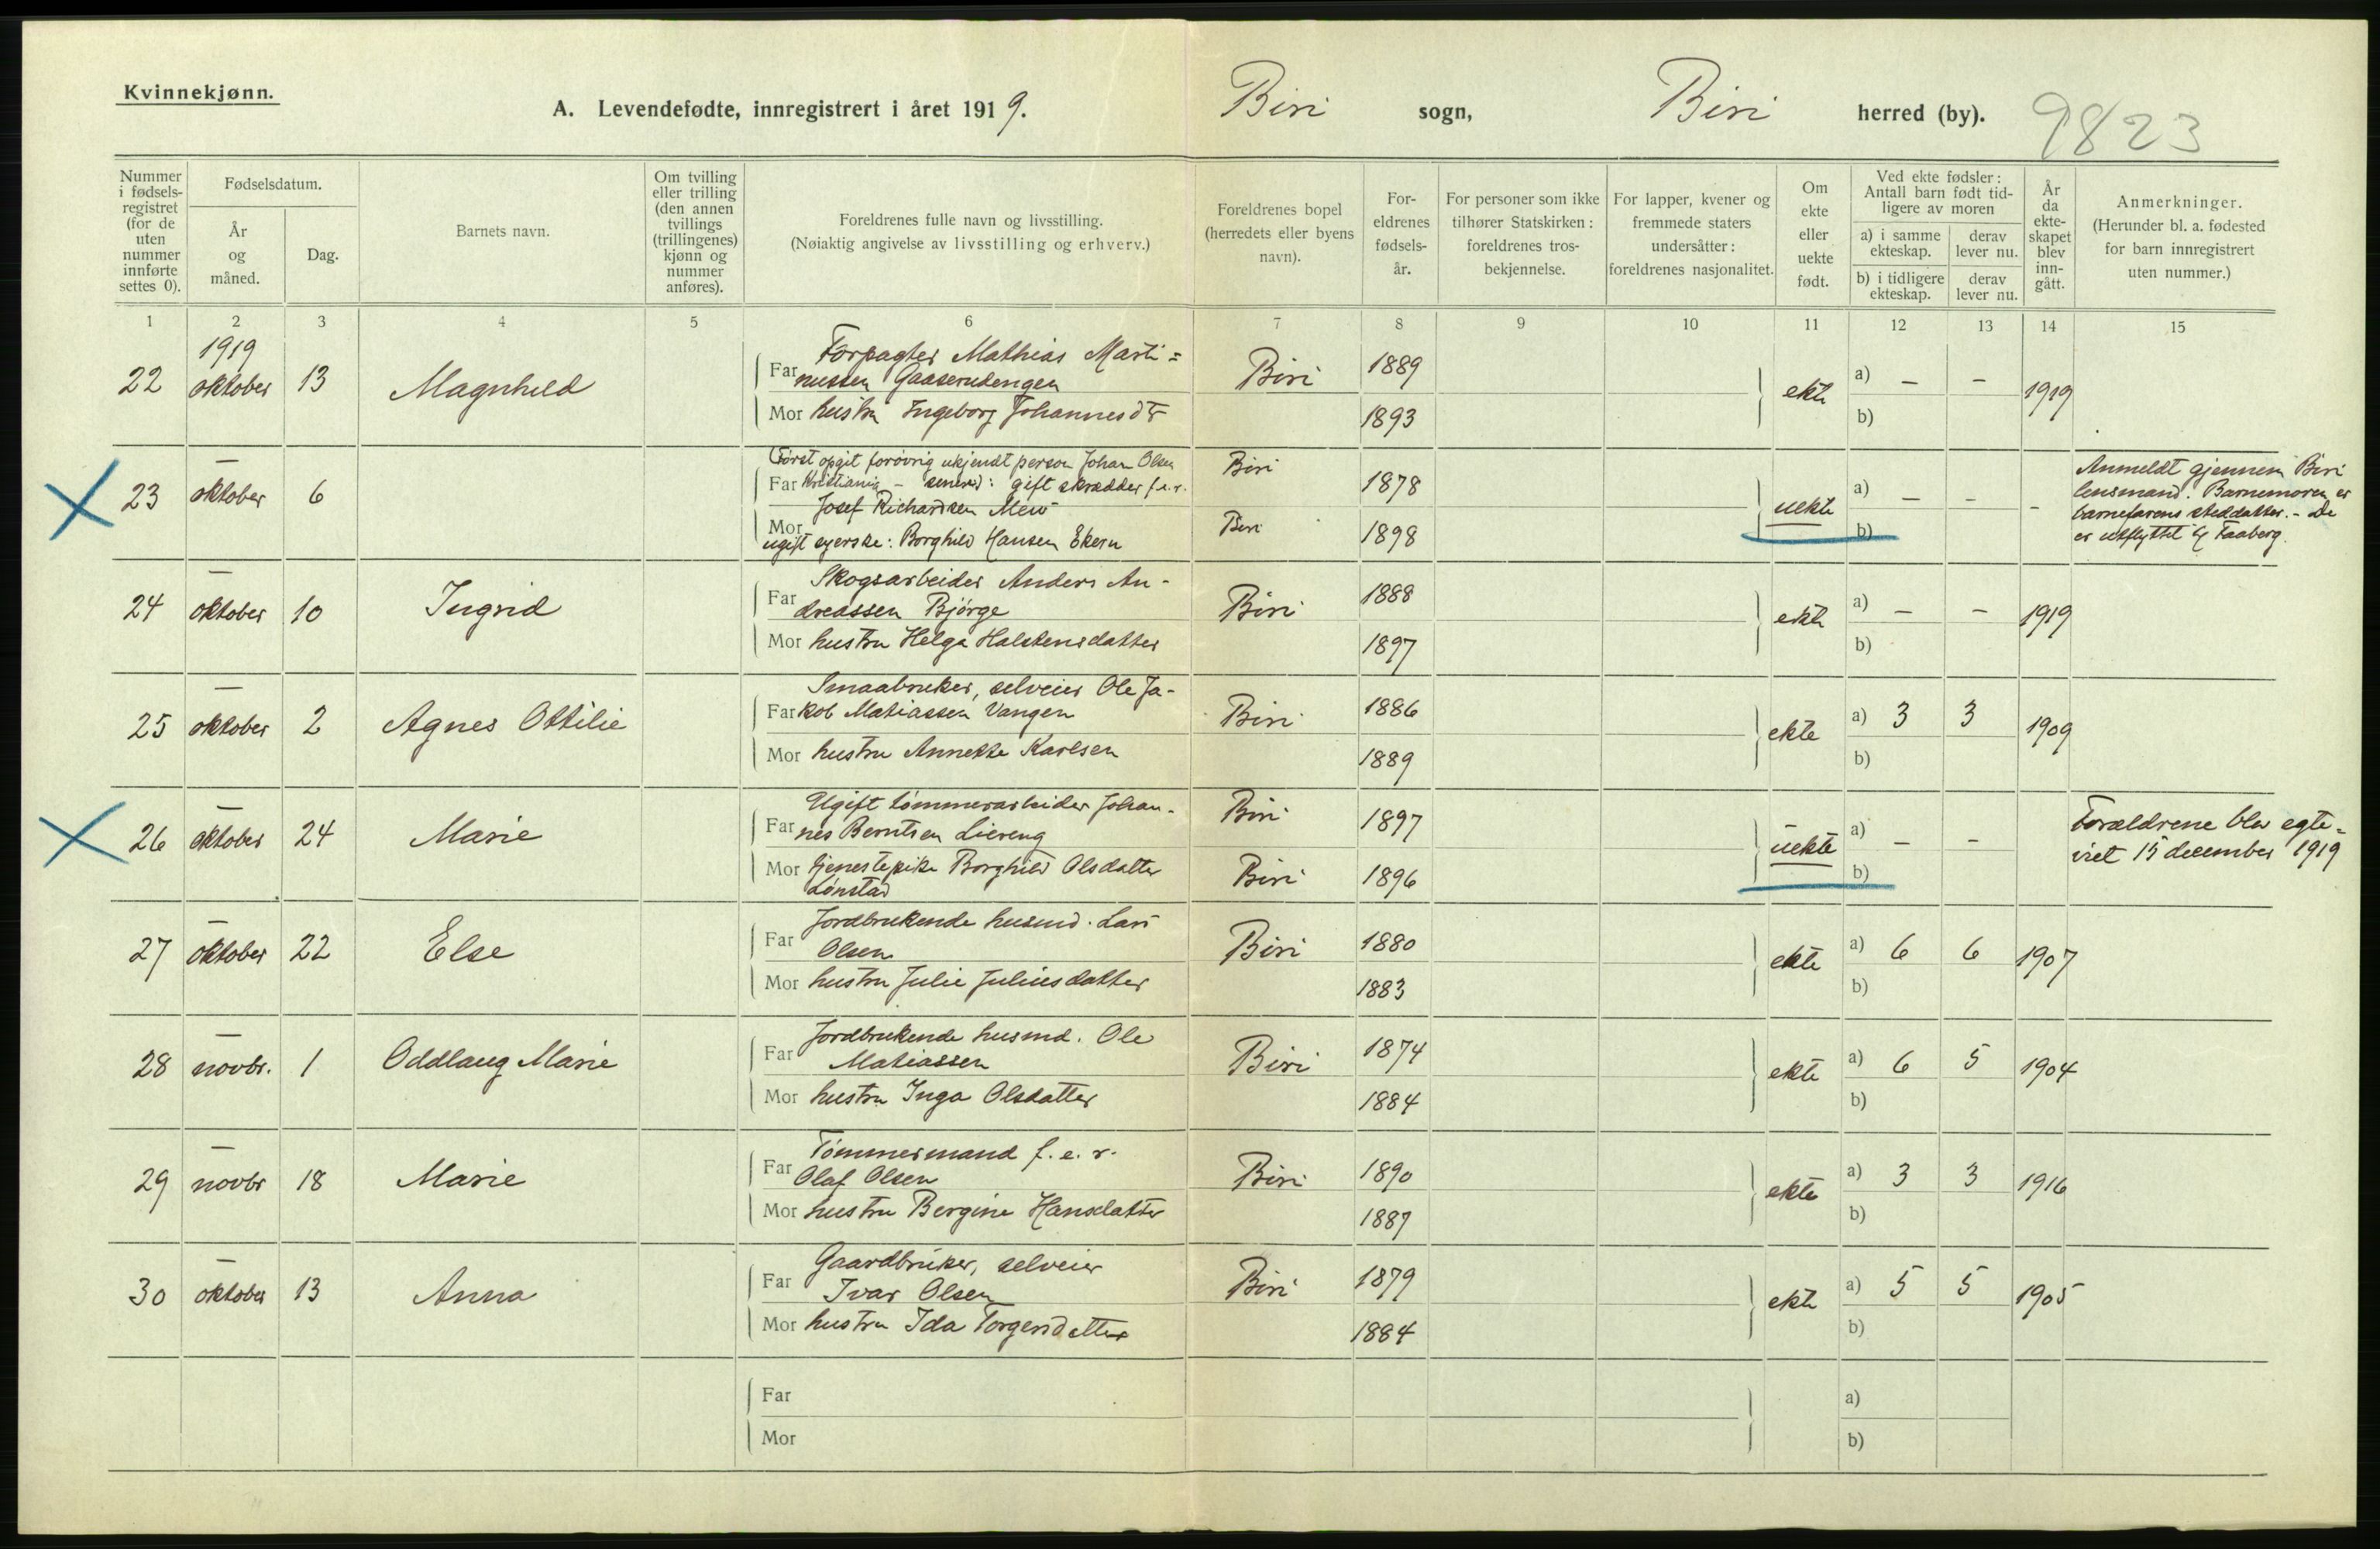 Kvinnekjønn.
A. Levendefødte, innregistrert i året 1919.
Biri sogn, Biri herred (by). 9823
Nummer i fødselsregistret (for de uten nummer innførte settes 0).
Fødselsdatum.
År og måned.
Dag.
Barnets navn.
Om tvilling eller trilling (den annen tvillings (trillingenes) kjønn og nummer anføres).
Foreldrenes fulle navn og livsstilling.
(Nøiaktig angivelse av livsstilling og erhverv.)
Foreldrenes bopel (herredets eller byens navn).
Foreldrenes fødselsår.
For personer som ikke tilhører Statskirken: foreldrenes trosbekjennelse.
For lapper, kvener og fremmede staters undersåtter: foreldrenes nasjonalitet.
Om ekte eller uekte født.
Ved ekte fødsler: Antall barn født tidligere av moren
a) i samme ekteskap.
derav lever nu.
b) i tidligere ekteskap.
derav lever nu.
År da ekteskapet blev inngått.
Anmerkninger.
(Herunder bl. a. fødested for barn innregistrert uten nummer.)
1 2 3 4 5 6 7 8 9 10 11 12 13 14 15
1919
22 oktober 13 Magnhild
Forpagter Mathias Marti=
Far nussen Gaaserudengen Biri 1889
Mor hustru Ingeborg Johannesdtr 1893
ekte a) – – 1919
b)
– 23 oktober 6
Först opgit forövrig ukjendt person Johan Olsen
Far Kristiania – senere: gift skrædder f.e.r. Biri 1878
Josef Richardsen Mew
Mor
ugift syerske: Borghild Hansen Ekern Biri 1898
uekte a) – – -
b)
Anmeldt gjennem Biri
lensmand. Barnemoren er
barnefarens steddatter. – De
er utflyttet til Faaberg.
– 24 oktober 10 Ingrid
Skogsarbeider Anders An-
Far dreassen Björge Biri 1888
Mor hustru Helga Halstensdatter 1897
ekte a) – – 1919
b)
– 25 oktober 2 Agnes Ottilie
Smaabruker, selveier Ole Ja-
Far kob Matiassen Vangen Biri 1886
Mor hustru Annette Karlsen 1889
ekte a) 3 3 1909
b)
– 26 oktober 24 Marie
Ugift tömmerarbeider Johan-
Far nes Berntsen Liereng Biri 1897
Mor tjenestepike Borghild Olsdatter Biri 1896
Lönstad
uekte a) – –
b)
Forældrene blev egte=
viet 15 december 1919
– 27 oktober 22 Else
Jordbrukende husmd. Lars
Far Olsen Biri 1880
Mor hustru Julie Juliusdatter 1883
ekte a) 6 6 1907
b)
– 28 novbr. 1 Oddlaug Marie
Jordbrukende husmd. Ole
Far Matiassen Biri 1874
Mor hustru Inga Olsdatter 1884
ekte a) 6 5 1904
b)
– 29 novbr 18 Marie
Tömmermand f.e.r.
Far Olaf Olsen Biri 1890
Mor hustru Bergine Hansdatter 1887
ekte a) 3 3 1916
b)
– 30 oktober 13 Anna
Gaardbruker, selveier
Far Ivar Olsen Biri 1879
Mor hustru Ida Torgersdatter 1884
ekte a) 5 5 1905
b)
Far a)
Mor b)